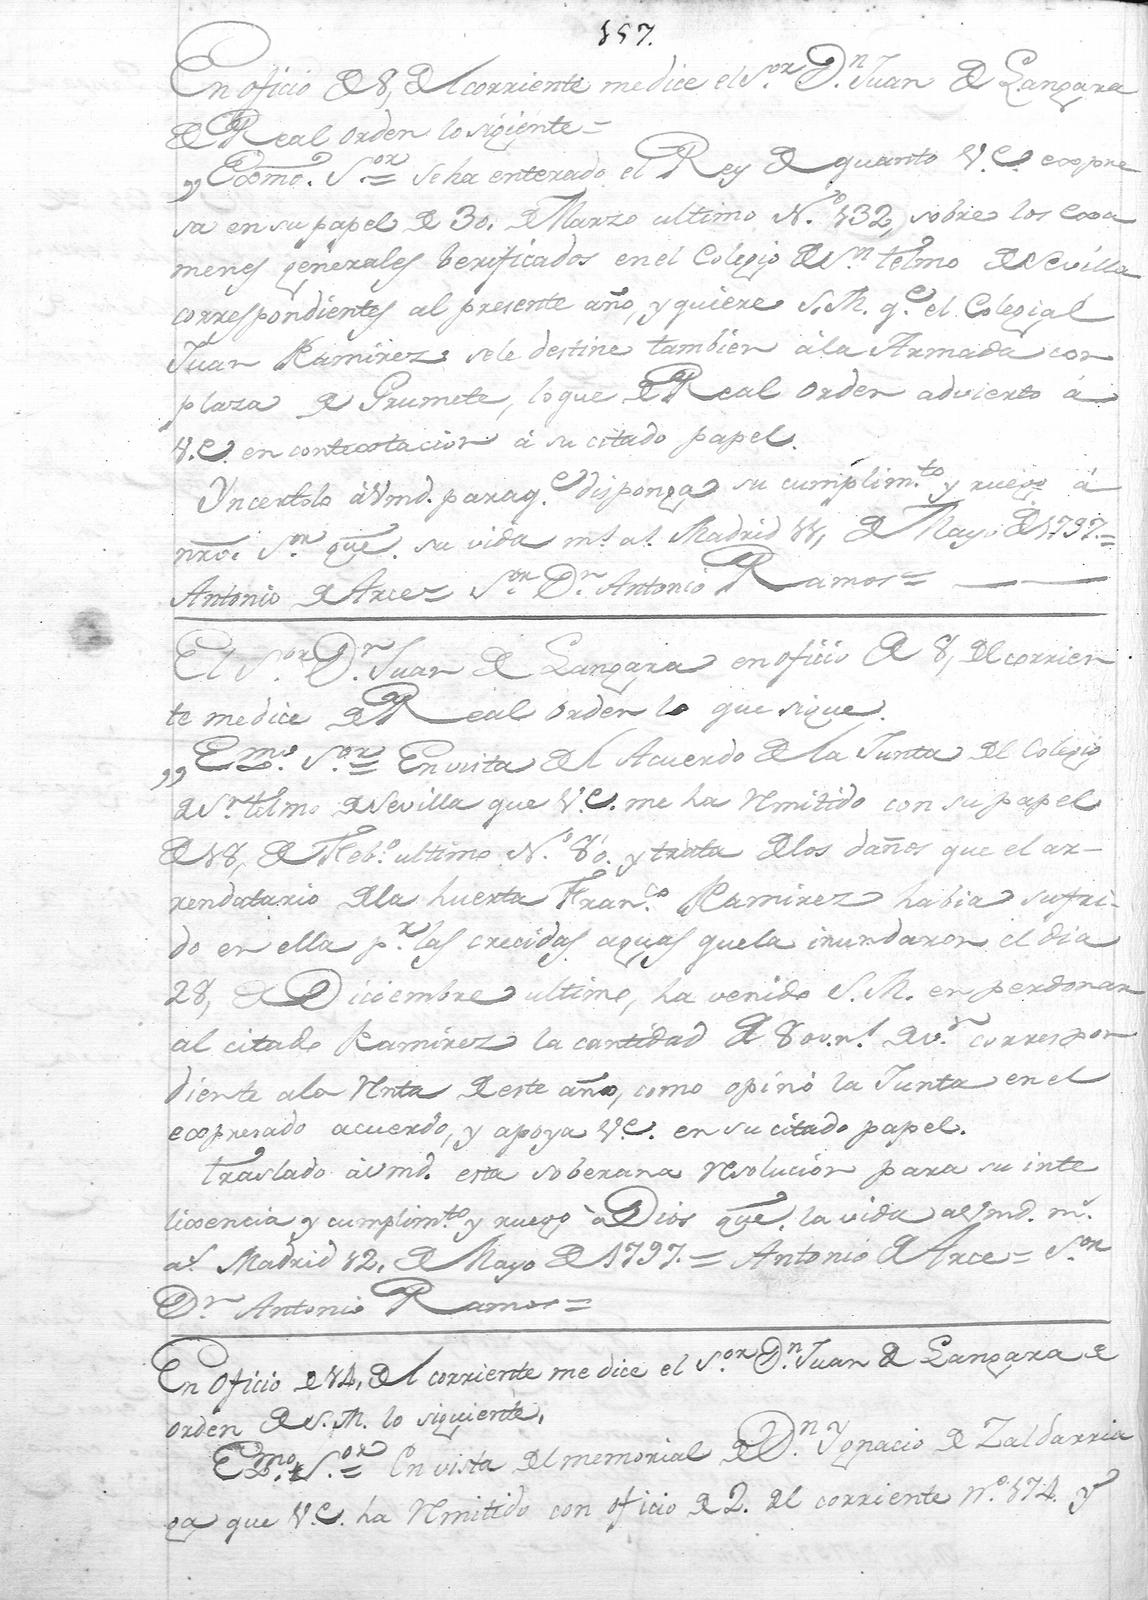 157.
En oficio de 8, del corriente me dice el S.or D.n Juan de Langara
de Real orden lo sigiente=
„Exmo. S.or= Se ha enterado el Rey de quanto V.E. expre
sa en su papel de 30. de Marzo ultimo N.o 132, sobre los exa
menes generales berificados en el Colegio de S.n telmo de Sevilla
correspondientes al presente año, y quiere S.M. q.e el Colegial
Juan Ramirez se le destine tambien à la Armada con
plaza de Grumete, lo que de Real orden advierto á
V.E. en contextacion á su citado papel.
Yncertolo à Vmd. para q.e disponga su cumplim.to y ruego á
nro. S.or gue. su vida m.s a.s Madrid 11, de Mayo de 1797.=
Antonio de Arce= S.or D.n Antonio Ramos=
El S.or D.n Juan de Langara en oficio de 8, del corrien
te me dice de Real orden lo que sigue.
„Exmo. S.or= En vista del Acuerdo de la Junta del Colegio
de S.n telmo de Sevilla que V.E. me ha Remitido con su papel
de 18, de Feb.o ultimo N.o 80. y trata de los daños que el ar-
rendatario de la huerta Fran.co Ramirez habia sufri-
do en ella p.r las crecidas aguas que la inundaron el dia
28, de Diciembre ultimo, ha venido S.M. en perdonar
al citado Ramirez la cantidad de 800 r.s de v.n correspon
diente a la Renta de este año, como opinó la Junta en el
expresado acuerdo, y apoya V.E. en su citado papel.
traslado à Vmd. esta soberana Resolucion para su inte
lixencia y cumplim.to y ruego à Dios gue. la vida de Vmd. m.s
a.s Madrid 12, de Mayo de 1797.= Antonio de Arce= S.or
D.n Antonio Ramos=
En Oficio de 14, del corriente me dice el S.or D.n Juan de Langara de
orden de S.M. lo siguiente.
Exmo. S.or= En vista del memorial de D.n Ygnacio de Zaldarria
ga que V.E. ha Remitido con oficio de 2. del corriente N.o 174. y